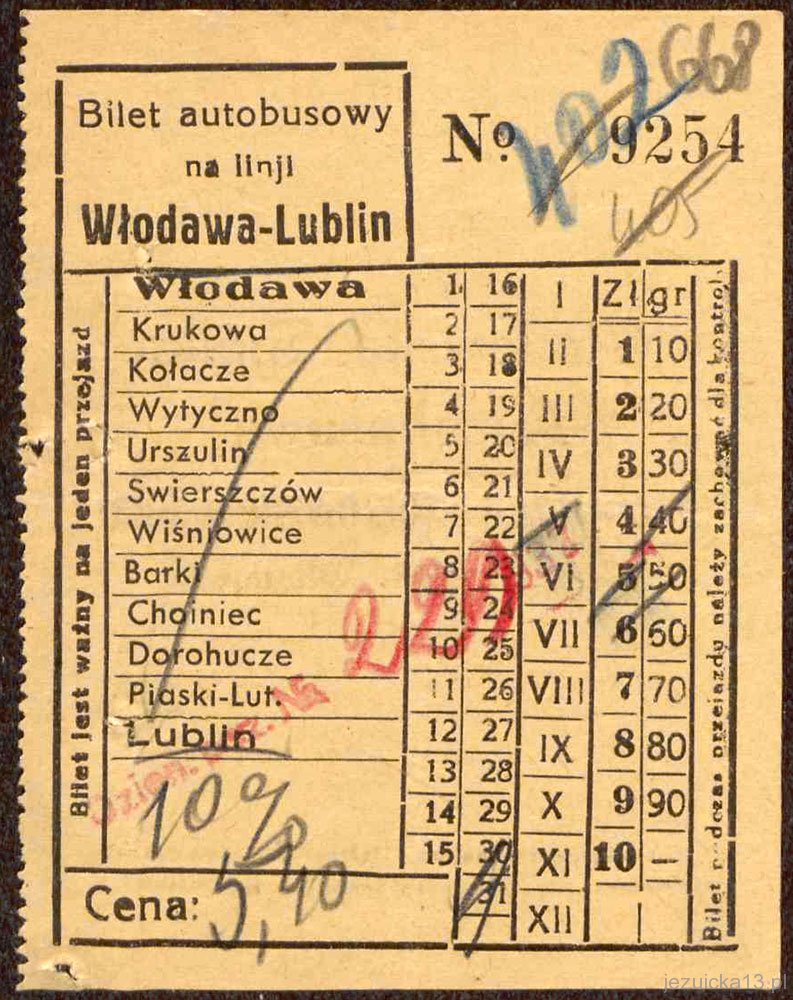 Bilet autobusowy
na linji
Włodawa-Lublin
№ 9254
407
668
405
Bilet jest ważny na jeden przejazd
Włodawa
Krukowa
Kołacze
Wytyczno
Urszulin
Swierszczów
Wiśniowice
Barki
Chojniec
Dorohucze
Piaski-Lut.
Lublin
1 16 I Zł gr
2 17 II 1 10
3 18 III 2 20
4 19 IV 3 30
5 20 V 4 40
6 21 VI 5 50
7 22 VII 6 60
8 23 VIII 7 70
9 24 IX 8 80
10 25 X 9 90
11 26 XI 10 —
12 27 XII
13 28
14 29
15 30
31
Bilet podczas przejazdu należy zachować dla kontroli
10%
Cena: 5,40
jezuicka13.pl